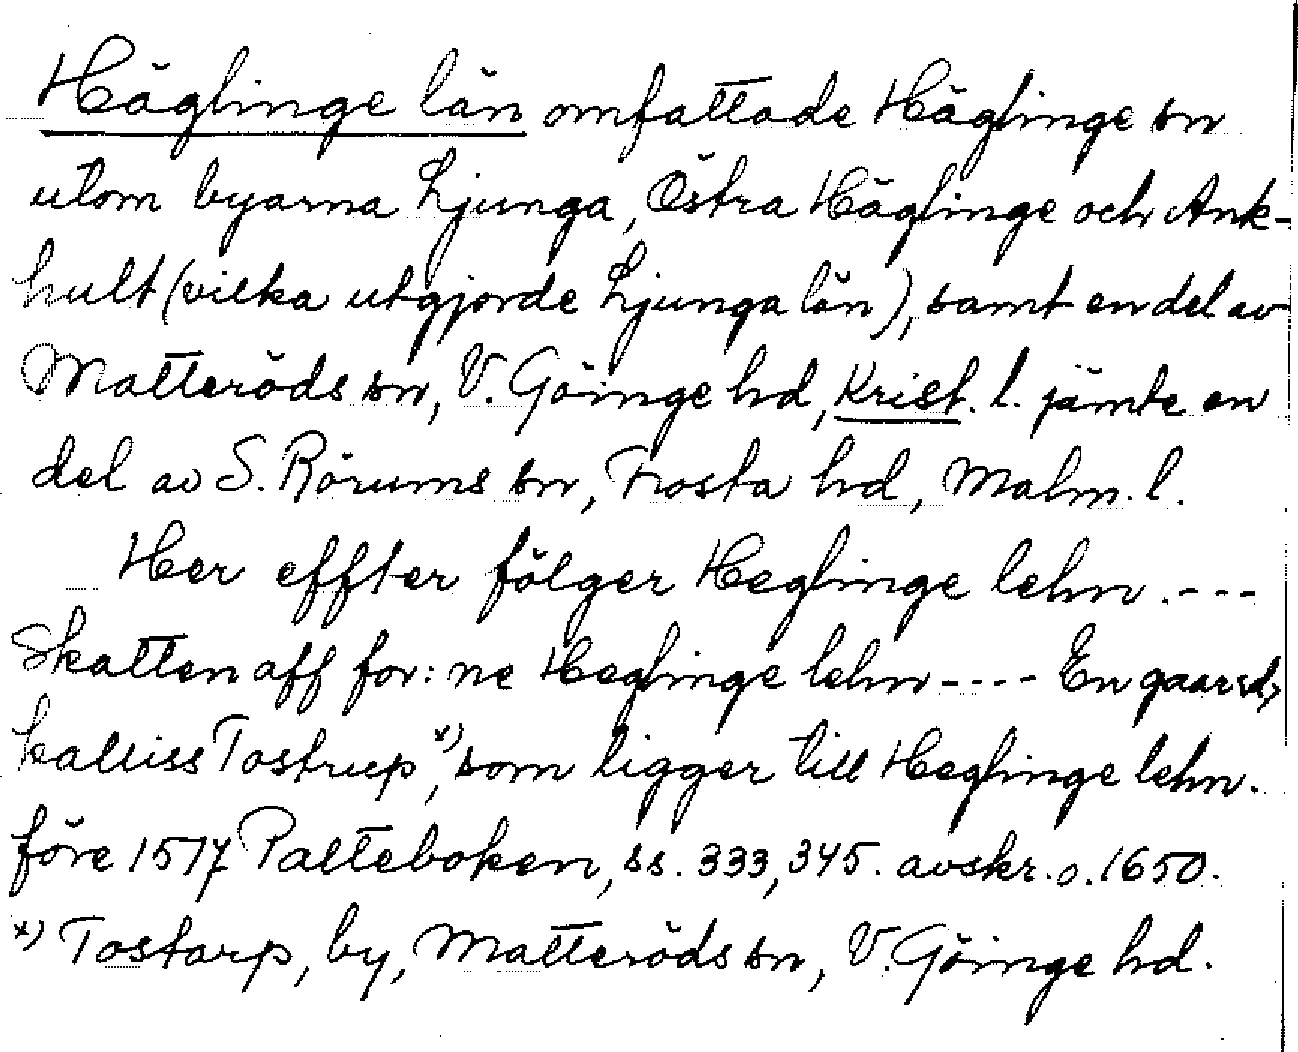 Häglinge län omfattade Häglinge sn
utom byarna Ljunga, Östra Häglinge och Ank-
hult (vilka utgjorde Ljunga län), samt en del av
Matteröds sn, V. Göinge hd, Krist. l. jämte en
del av S. Rörums sn, Frosta hd, Malm. l.
Her effter fölger Heglinge lehn. ---
Skatten aff for: ne Heglinge lehn ---- En gaard,
kaltiss Tostrup,ˣ⁾ som ligger till Heglinge lehn.
före 1517 Palteboken, ss. 333, 345. avskr. o. 1650.
ˣ⁾ Tostarp, by, Matteröds sn, V. Göinge hd.